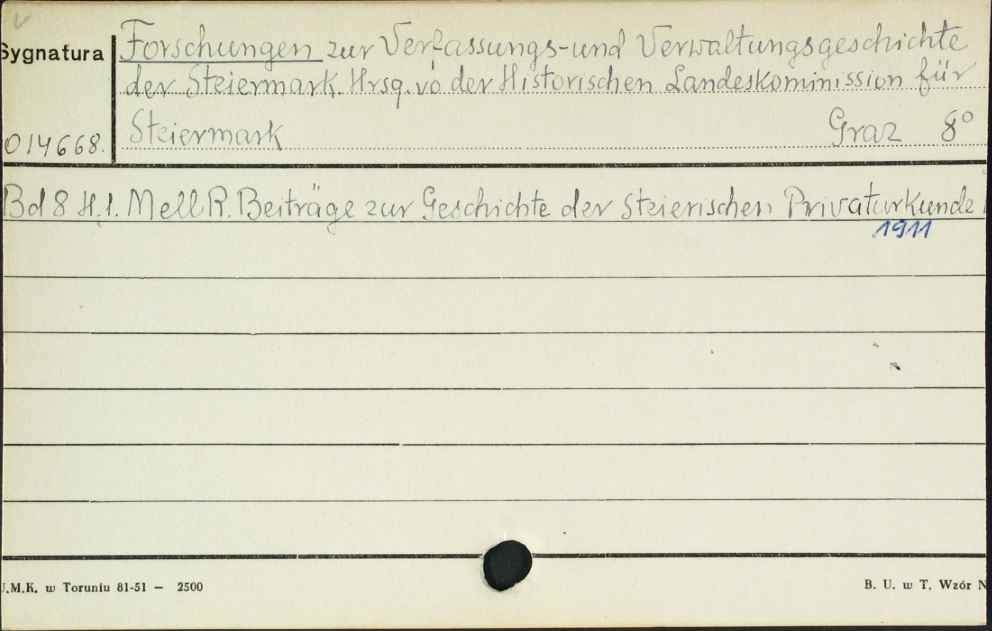 Sygnatura
Forschungen zur Verfassungs-und Verwaltungsgeschichte
der Steiermark. Hrsg. vo der Historischen Landeskommission für
014668.
Steiermark Graz 8°
Bd 8 H.1. Mell R. Beiträge zur Geschichte der Steierischen Privaturkunde
1911
U.M.K. w Toruniu 81-51 — 2500
B. U. w T. Wzór N